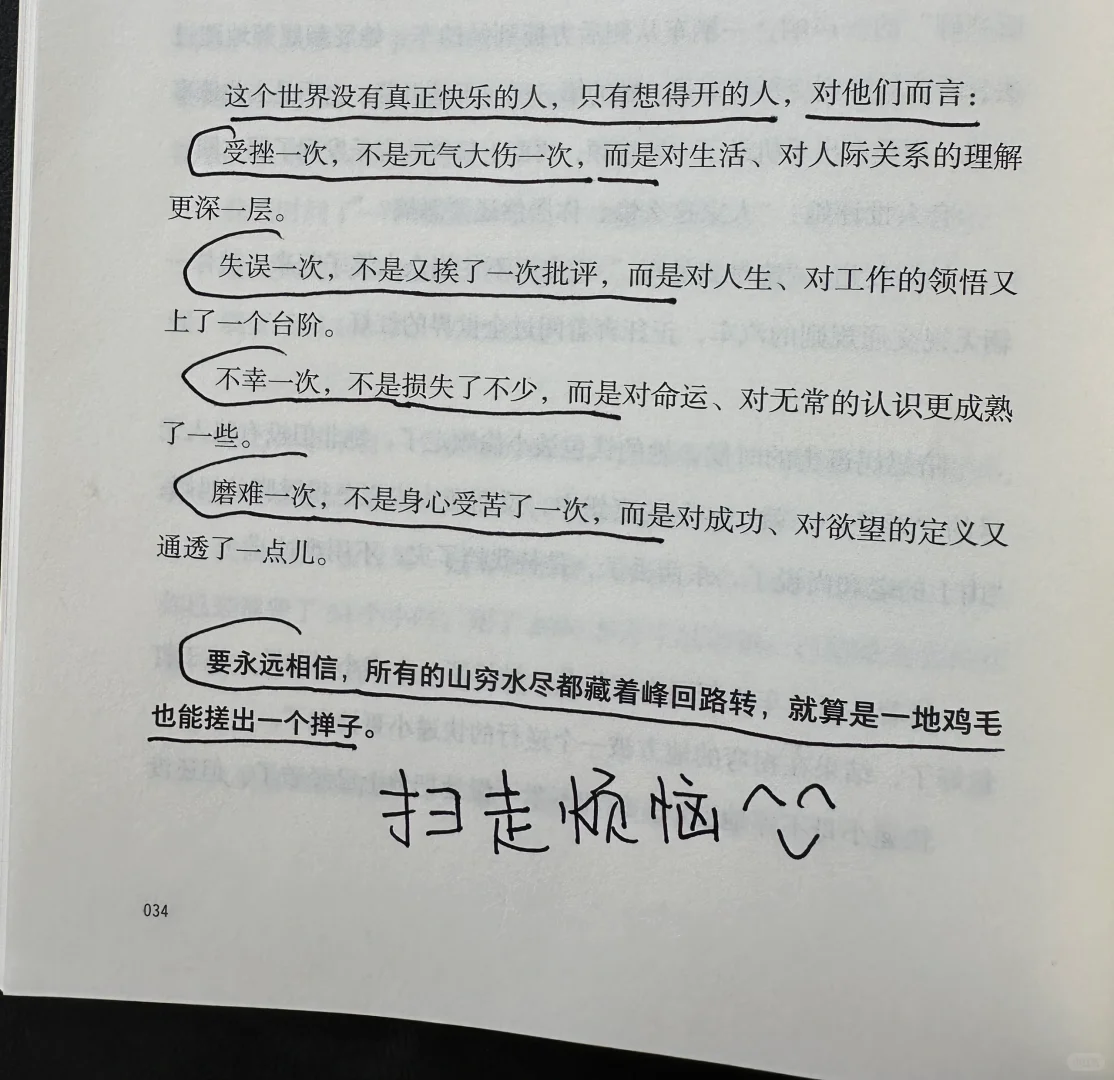 这个世界没有真正快乐的人，只有想得开的人，对他们而言：
受挫一次，不是元气大伤一次，而是对生活、对人际关系的理解
更深一层。
失误一次，不是又挨了一次批评，而是对人生、对工作的领悟又
上了一个台阶。
不幸一次，不是损失了不少，而是对命运、对无常的认识更成熟
了一些。
磨难一次，不是身心受苦了一次，而是对成功、对欲望的定义又
通透了一点儿。
要永远相信，所有的山穷水尽都藏着峰回路转，就算是一地鸡毛
也能搓出一个掸子。
扫走烦恼
034